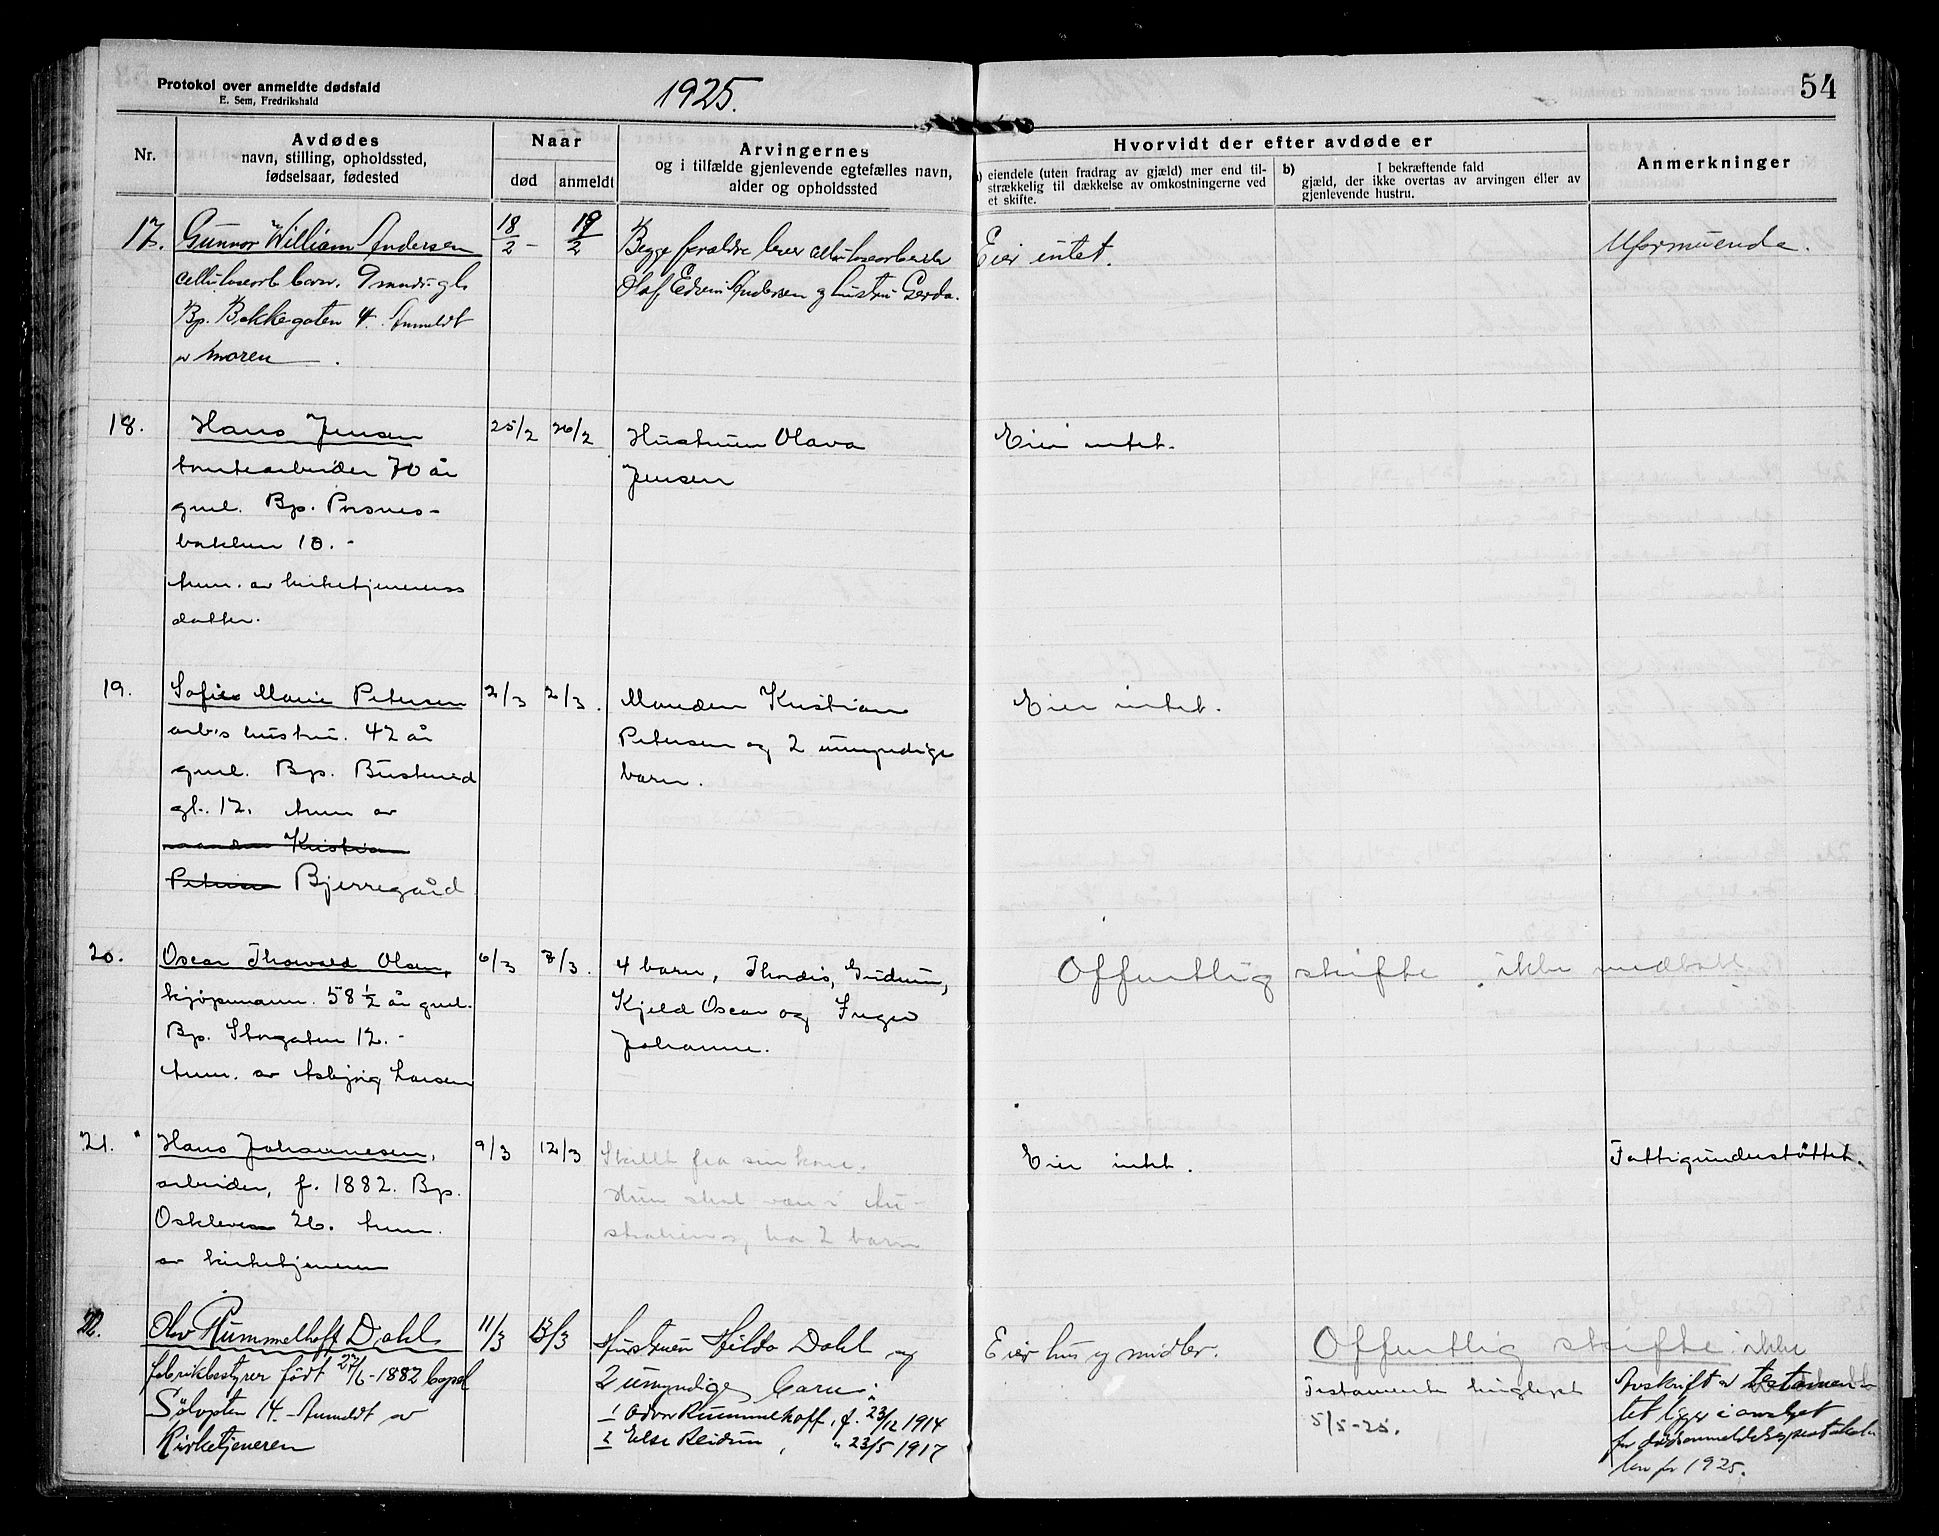 Protokol over anmeldte dødsfald
E. Sem, Fredrikshald
1925.
54
Nr.
Avdødes
navn, stilling, opholdssted,
fødselsaar, fødested
Naar
død
anmeldt
Arvingernes
og i tilfælde gjenlevende egtefælles navn,
alder og opholdssted
Hvorvidt der efter avdøde er
) eiendele (uten fradrag av gjæld) mer end til-
strækkelig til dækkelse av omkostningerne ved
et skifte.
b) I bekræftende fald
gjæld, der ikke overtas av arvingen eller av
gjenlevende hustru.
Anmerkninger
17.
Gunnar William Andersen
cellulosearb. barn. 9 mndr. gl.
Bp. Bakkegaten 4. Anmeldt
av moren.
18/2 -
19/2
Begge forældre lever cellulosearbeider
Olaf Edvin Andersen og hustru Gerda.
Eier intet.
Uformuende.
18.
Hans Jensen
tomtearbeider 70 år
gml. Bp. Posnes-
bakken 10. -
Anm. av kirketjenerens
datter.
25/2
26/2
Hustruen Olava
Jensen
Eier intet.
19.
Sofie Marie Petersen
arb's hustru. 42 år
gml. Bp. Busterud
gt. 12. Anm av
manden Kristian
Petersen Bjerregård
2/3
2/3.
Manden Kristian
Petersen og 2 umyndige
barn.
Eier intet.
20.
Oscar Thorvald Olsen,
kjøpmann. 58 1/2 år gml.
Bp. Storgaten 12. -
Anm. av Asbjørg Larsen
6/3
7/3.
4 barn, Thordis, Gudrun,
Kjeld Oscar og Inger
Johanne.
Offentlig skifte ikke
21.
Hans Johannesen,
arbeider, f. 1882. Bp.
Oskleven 26. Anm.
av kirketjeneren
9/3
12/3
Skillt fra sin kone.
Hun skal være i Au-
stralien og ha 2 barn
Eier intet.
Fattigunderstøttet.
22.
Olav Rummelhoff Dahl
fabrikbestyrer født 27/6-1882 bopel
Sølvgten 14. Anmeldt av
Kirketjeneren
11/3
13/3
Hustruen Hilda Dahl og
2 umyndige barn:
1 Odvar Rummelhoff, f. 23/12 1914
2 Else Reidun, " 23/5 1917
Eier hus og midler.
Offentlig skifte ikke
Testamente tinglyst
5/5-25.
Avskrift av testamen-
tet ligger i omslget
for dødsanmeldelsesprotokol-
len for 1925.